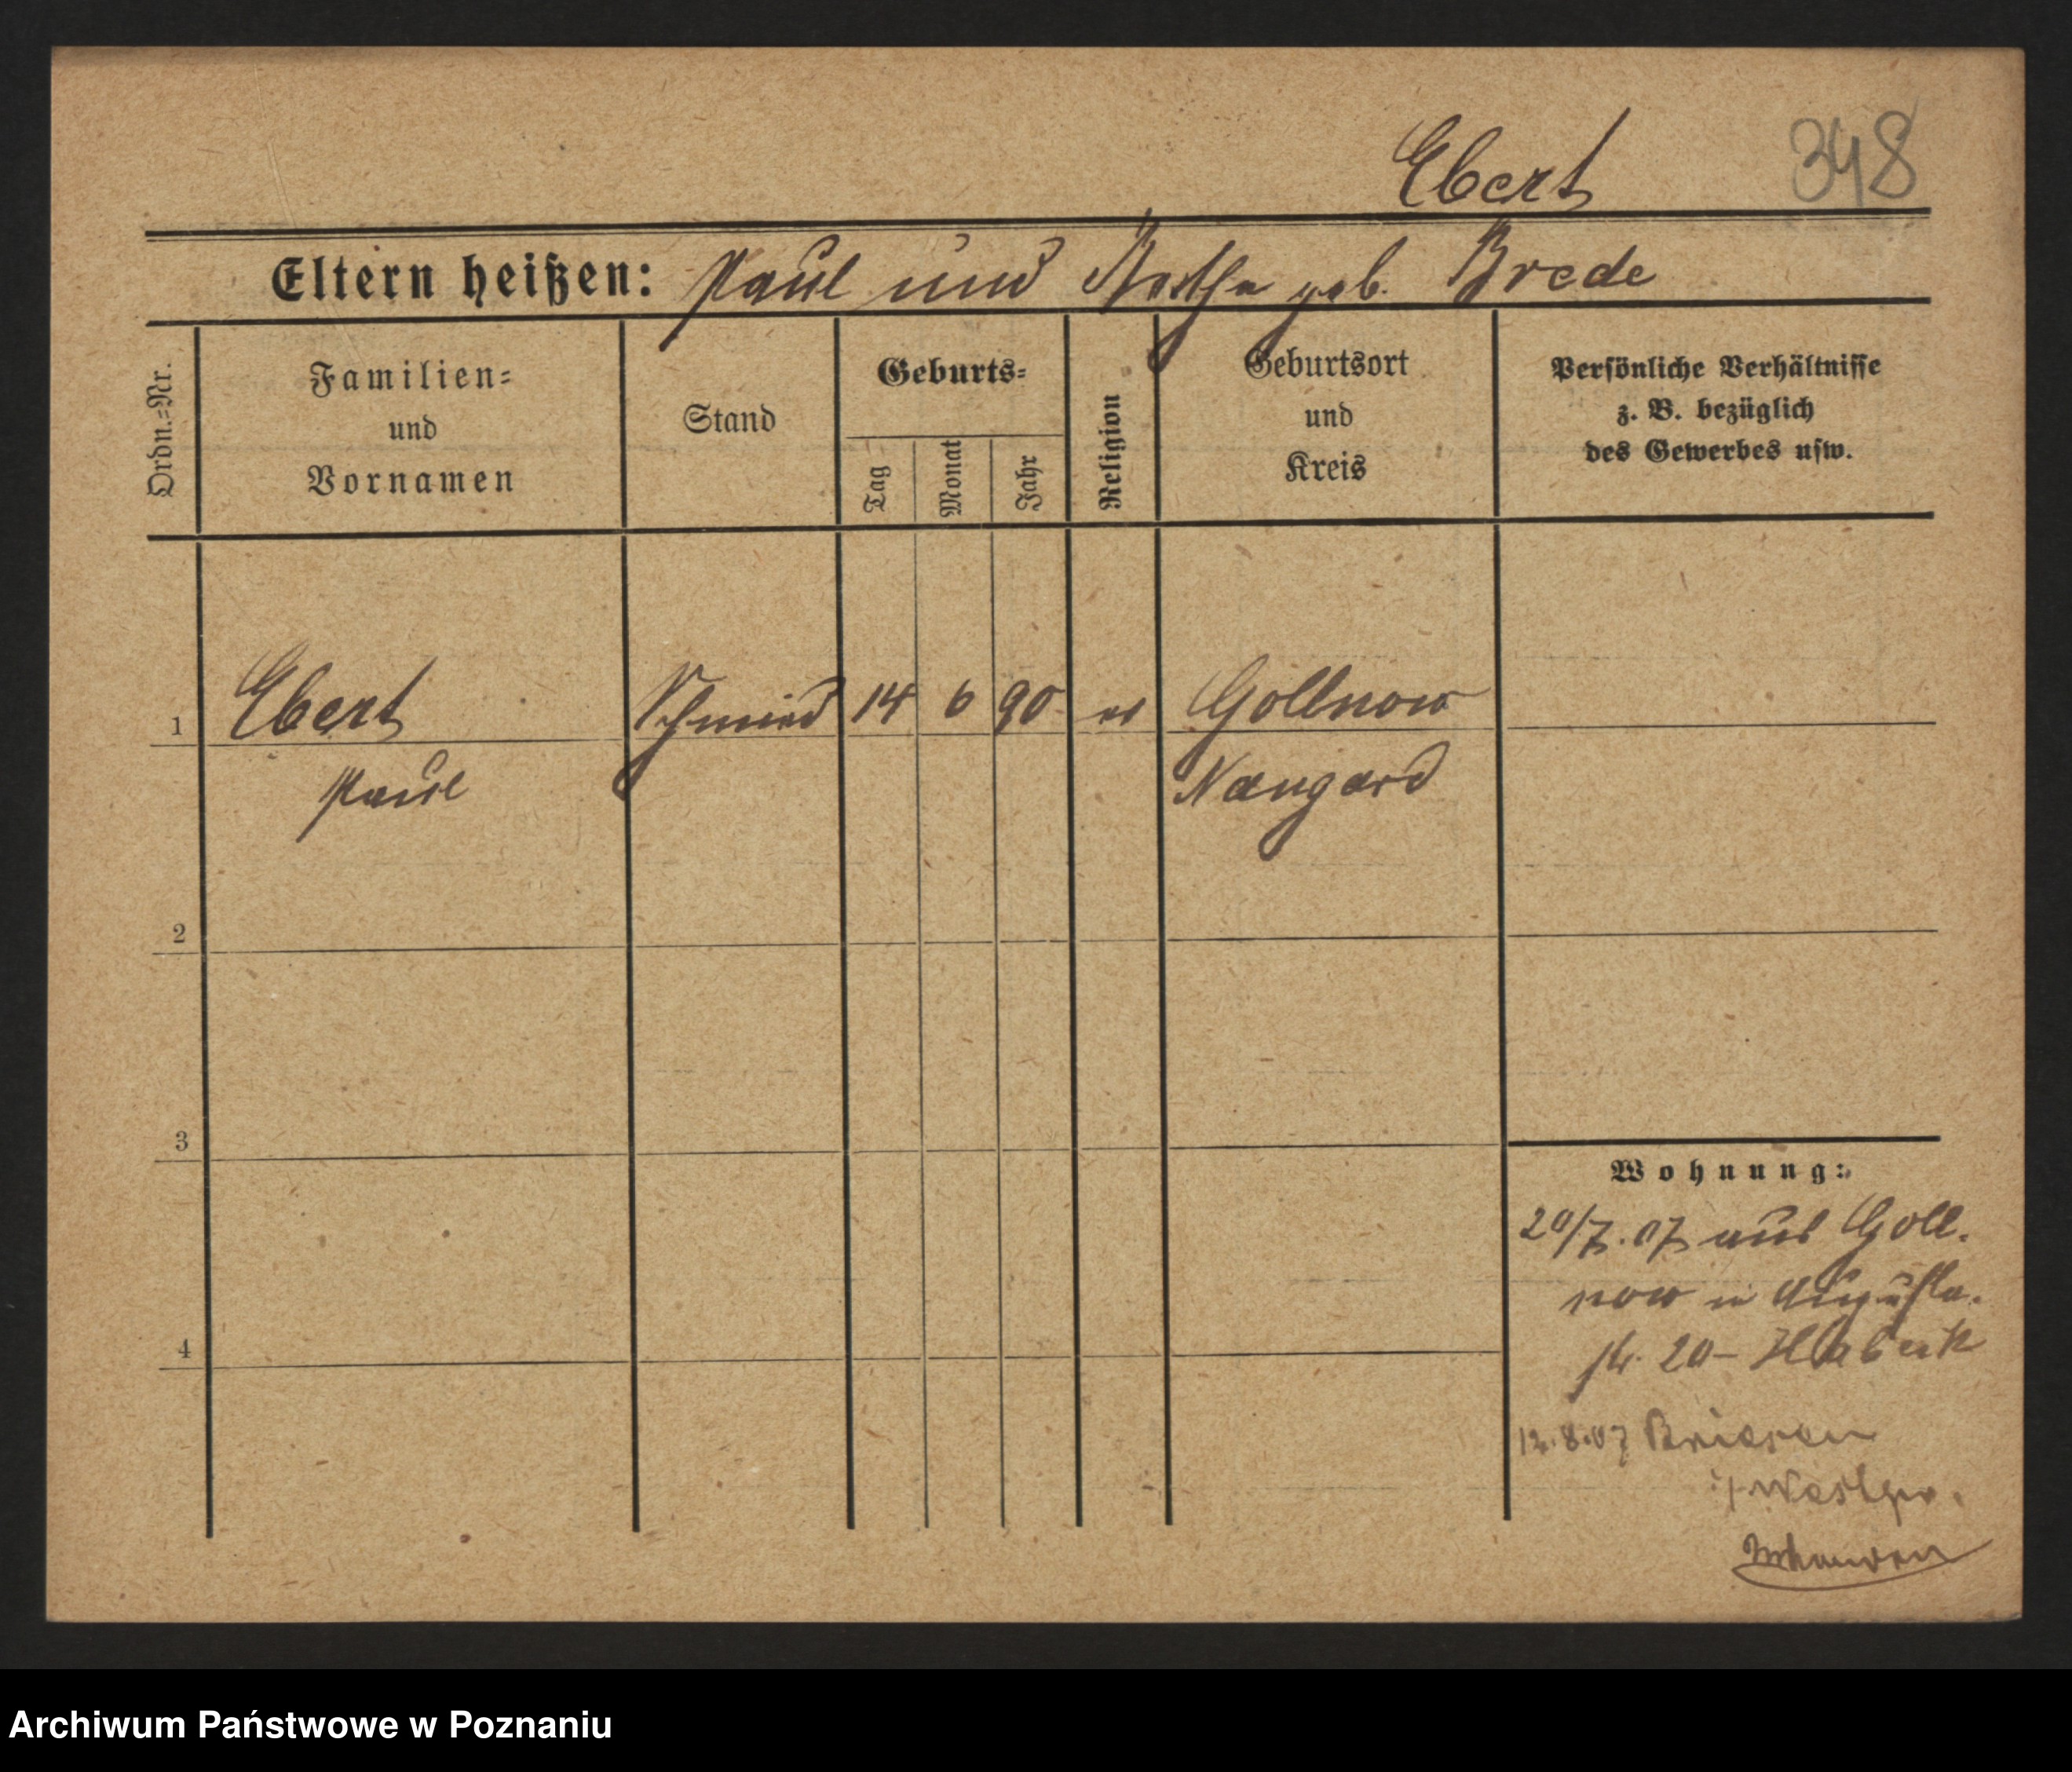 Ebert 348
Eltern heißen: Paul und Berthe geb. Brede
Ordn.=Nr.
Familien=
und
Vornamen
Stand
Geburts=
Tag
Monat
Jahr
Religion
Geburtsort
und
Kreis
Persönliche Verhältnisse
z. B. bezüglich
des Gewerbes usw.
1 Ebert Schmied 14 6 90 ev Gollnow
Paul Naugard
2
3
4
Wohnung:
20/7.07 aus Goll.
now n Augusta.
str. 20 -
12.8.07 Briesen
i/ Westpr.
Archiwum Państwowe w Poznaniu